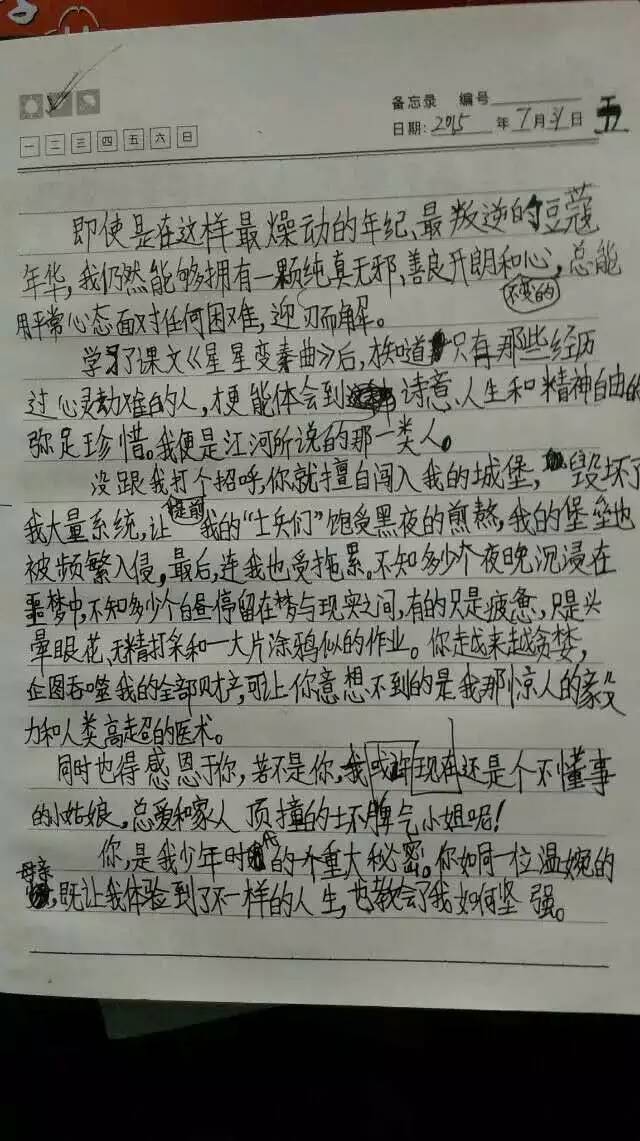 备忘录 编号
一 二 三 四 五 六 日 日期: 2015 年 7 月 31 日 五
即使是在这样最燥动的年纪、最叛逆的豆蔻
年华,我仍然能够拥有一颗纯真无邪、善良开朗和心,总能
不变的
用平常心态面对任何困难,迎刃而解。
学习了课文《星星变奏曲》后,才知道只有那些经历
过心灵劫难的人,才更能体会到诗意、人生和精神自由的
弥足珍惜。我便是江河所说的那一类人。
没跟我打个招呼,你就擅自闯入我的城堡,毁坏了
我大量系统,让我的“士兵们”提前饱受黑夜的煎熬,我的堡垒也
被频繁入侵,最后,连我也受拖累。不知多少个夜晚沉浸在
噩梦中,不知多少个白昼停留在梦与现实之间,有的只是疲惫,只是头
晕眼花、无精打采和一大片涂鸦似的作业。你越来越贪婪,
企图吞噬我的全部财产,可让你意想不到的是我那惊人的毅
力和人类高超的医术。
同时也得感恩于你,若不是你,我或许现在还是个不懂事
的小姑娘,总爱和家人顶撞的坏脾气小姐呢!
你,是我少年时代的一个重大秘密。你如同一位温婉的
母亲,既让我体验到了不一样的人生,也教会了我如何坚强。